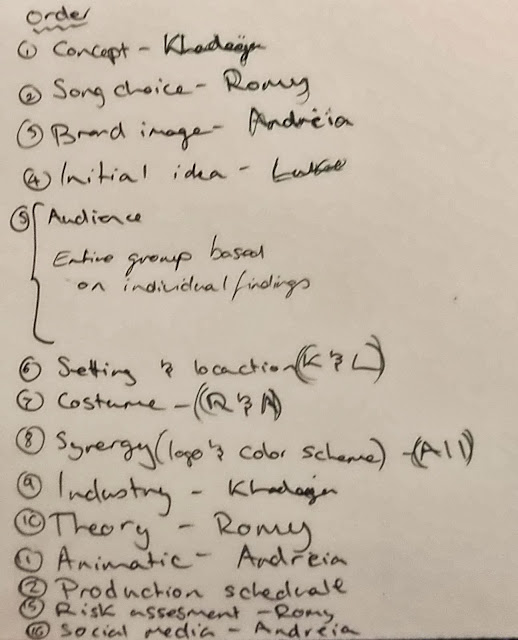 Order
① Concept - Khadeeja
② Song choice - Romy
③ Brand image - Andréia
④ Initial idea - Luke
⑤ Audience
Entire group based
on individual findings
⑥ Setting & locaction (K & L)
⑦ Costume - (R & A)
⑧ Synergy (logo & color scheme) - (All)
⑨ Industry - Khadeeja
⑩ Theory - Romy
⑪ Animatic - Andréia
⑫ Production scheduale
⑬ Risk assesment - Romy
Social media - Andréia